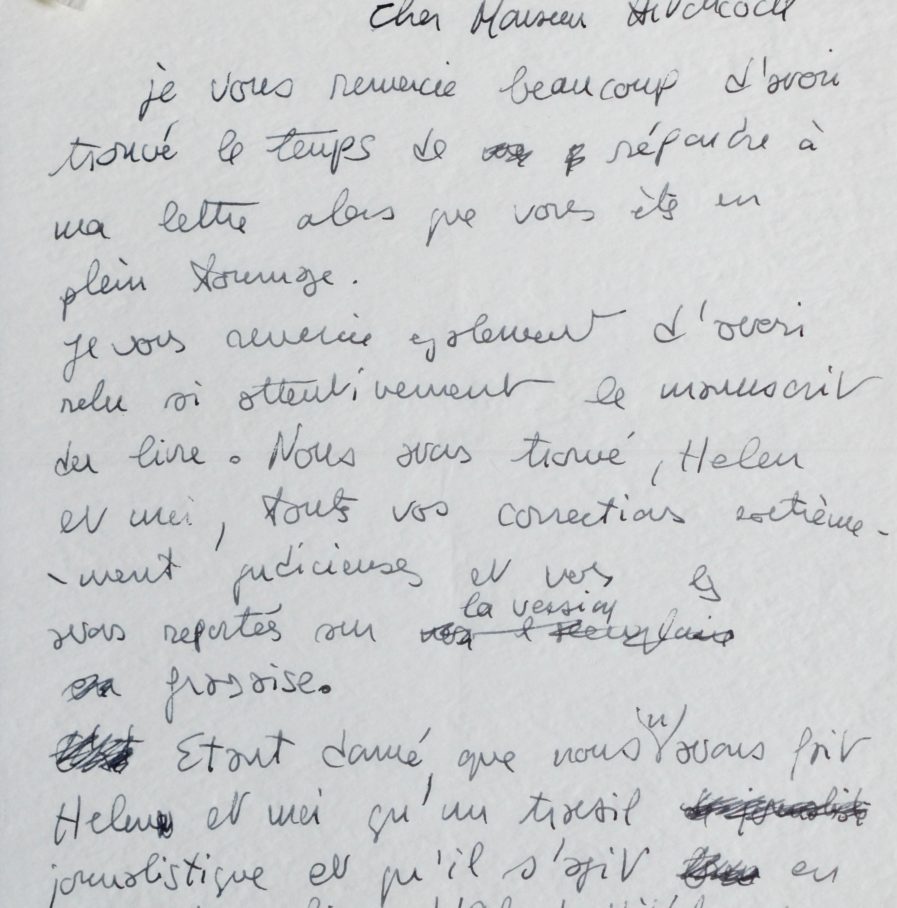 Cher Monsieur Hitchcock
je vous remercie beaucoup d'avoir
trouvé le temps de répondre à
ma lettre alors que vous êtes en
plein tournage.
Je vous remercie également d'avoir
relu si attentivement le manuscrit
du livre. Nous avons trouvé, Helen
et moi, toutes vos corrections extrême-
-ment judicieuses et nous les
la version
avons reportés sur
française.
Etant donné, que nous (n') avons fait
Helen et moi qu'un travail
journalistique et qu'il s'agit en